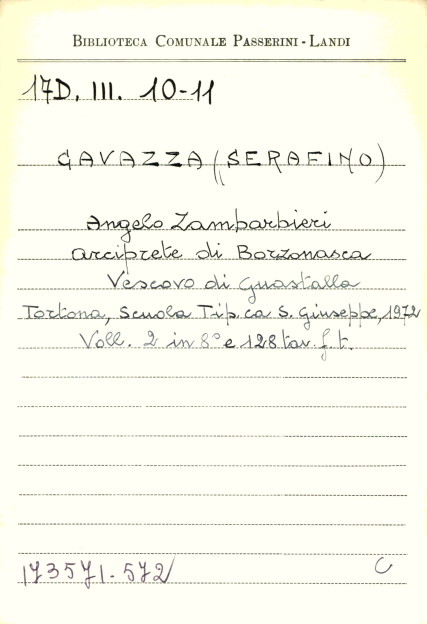 BIBLIOTECA COMUNALE PASSERINI - LANDI
17D. III. 10-11
GAVAZZA (SERAFINO)
Angelo Zambarbieri
arciprete di Borzonasca
Vescovo di Guastalla
Tortona, Scuola Tip.ca S. Giuseppe, 1972
Voll. 2 in 8° e 128 tav. f. t.
173571-572 C